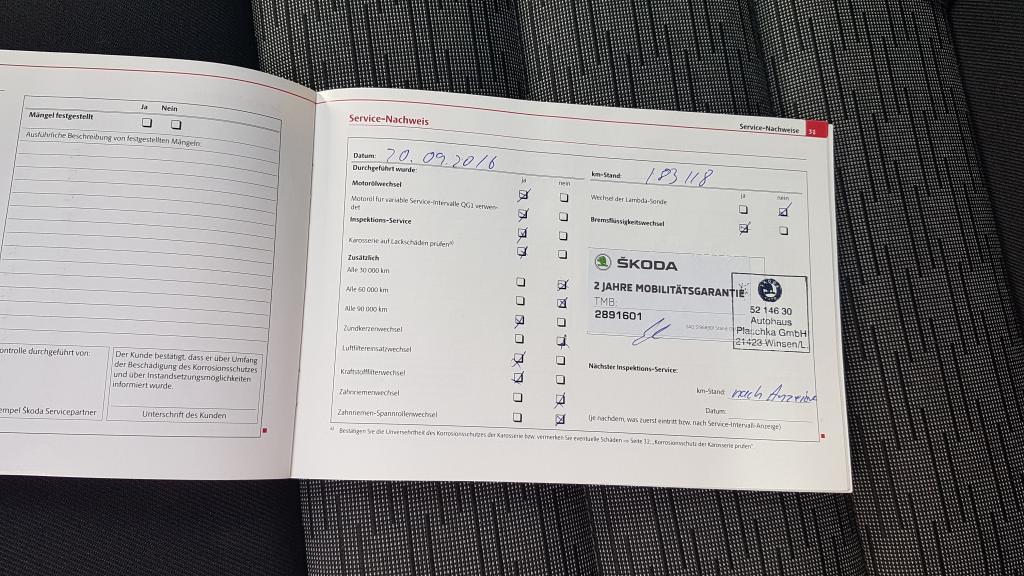 Ja Nein
Mängel festgestellt
Ausführliche Beschreibung von festgestellten Mängeln:
ontrolle durchgeführt von:
empel Škoda Servicepartner
Der Kunde bestätigt, dass er über Umfang
der Beschädigung des Korrosionsschutzes
und über Instandsetzungsmöglichkeiten
informiert wurde.
Unterschrift des Kunden
Service-Nachweis
Service-Nachweise
Datum: 20.09.2016
Durchgeführt wurde:
ja nein
Motorölwechsel
Motoröl für variable Service-Intervalle QG1 verwen-
det
Inspektions-Service
Karosserie auf Lackschäden prüfen a)
Zusätzlich
Alle 30 000 km
Alle 60 000 km
Alle 90 000 km
Zündkerzenwechsel
Luftfiltereinsatzwechsel
Kraftstofffilterwechsel
Zahnriemenwechsel
Zahnriemen-Spannrollenwechsel
km-Stand: 183118
ja nein
Wechsel der Lambda-Sonde
Bremsflüssigkeitswechsel
ŠKODA
2 JAHRE MOBILITÄTSGARANTIE
TMB:
2891601
52 146 30
Autohaus
Plaschka GmbH
21423 Winsen/L
Nächster Inspektions-Service:
km-Stand: nach Anzeige
Datum:
(je nachdem, was zuerst eintritt bzw. nach Service-Intervall-Anzeige)
a) Bestätigen Sie die Unversehrtheit des Korrosionsschutzes der Karosserie bzw. vermerken Sie eventuelle Schäden ⇒ Seite 32, „Korrosionsschutz der Karosserie prüfen“.